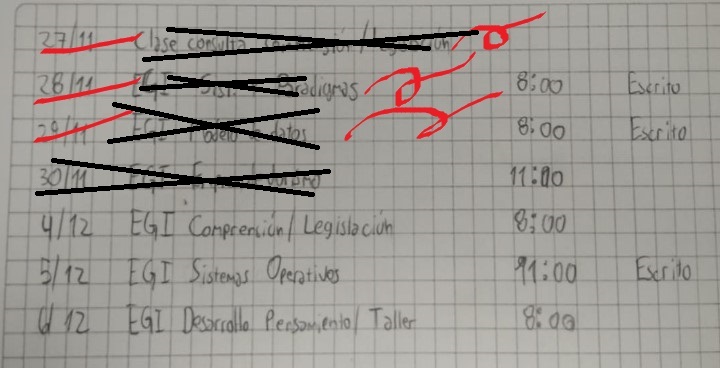 27/11 Clase consulta
28/11 EGI 8:00 Escrito
29/11 EGI datos 8:00 Escrito
30/11 EGI 11:00
4/12 EGI Comprención/Legislación 8:00
5/12 EGI Sistemas Operativos 11:00 Escrito
6/12 EGI Desarrollo Pensamiento/Taller 8:00